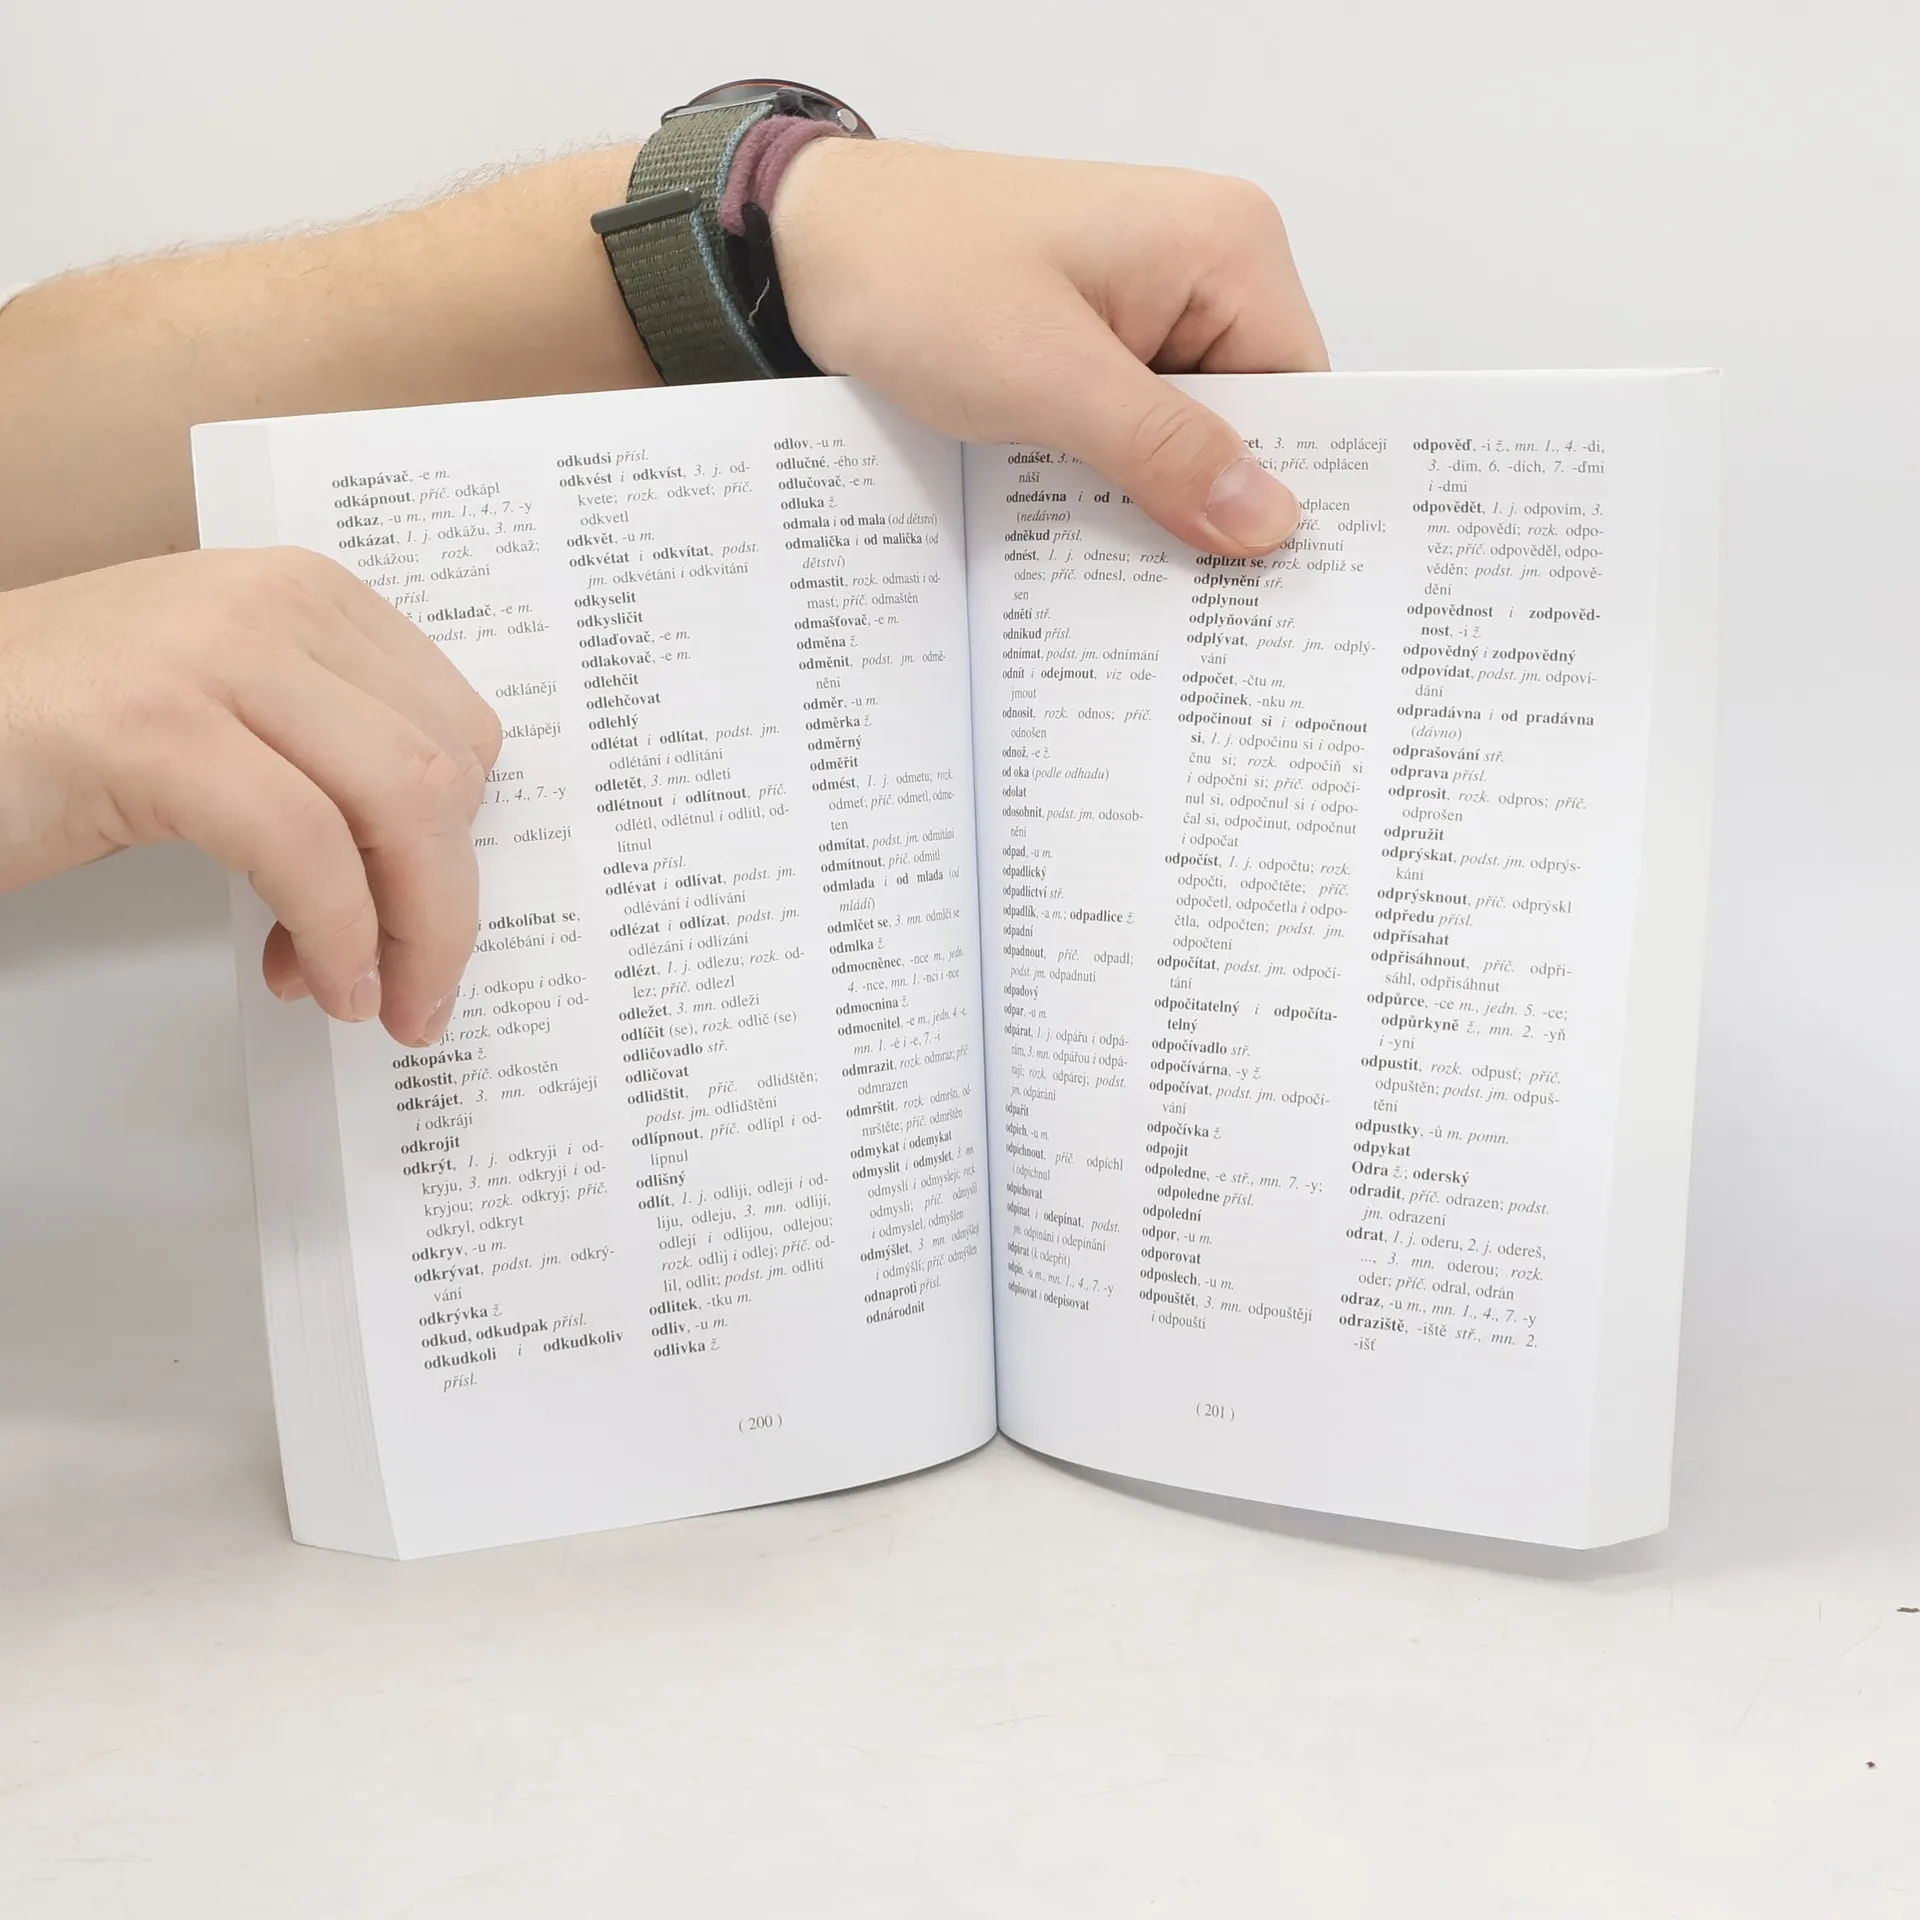 odkapávač, -e m.
odkápnout, příč. odkápl
odkaz, -u m., mn. 1., 4., 7. -y
odkázat, 1. j. odkážu, 3. mn.
odkážou; rozk. odkaž;
podst. jm. odkázání
přísl.
i odkladač, -e m.
podst. jm. odklá-
odklánějí
odklápějí
klizen
1., 4., 7. -y
mn. odklízejí
i odkolíbat se,
odkolébání i od-
1. j. odkopu i odko-
mn. odkopou i od-
rozk. odkopej
odkopávka ž.
odkostit, příč. odkostěn
odkrájet, 3. mn. odkrájejí
i odkrájí
odkrojit
odkrýt, 1. j. odkryji i od-
kryju, 3. mn. odkryjí i od-
kryjou; rozk. odkryj; příč.
odkryl, odkryt
odkryv, -u m.
odkrývat, podst. jm. odkrý-
vání
odkrývka ž.
odkud, odkudpak přísl.
odkudkoli i odkudkoliv
přísl.
odkudsi přísl.
odkvést i odkvíst, 3. j. od-
kvete; rozk. odkveť; příč.
odkvetl
odkvět, -u m.
odkvétat i odkvítat, podst.
jm. odkvétání i odkvítání
odkyselit
odkysličit
odlaďovač, -e m.
odlakovač, -e m.
odlehčit
odlehčovat
odlehlý
odlétat i odlítat, podst. jm.
odlétání i odlítání
odletět, 3. mn. odletí
odlétnout i odlítnout, příč.
odlétl, odlétnul i odlítl, od-
lítnul
odleva přísl.
odlévat i odlívat, podst. jm.
odlévání i odlívání
odlézat i odlízat, podst. jm.
odlézání i odlízání
odlézt, 1. j. odlezu; rozk. od-
lez; příč. odlezl
odležet, 3. mn. odleží
odlíčit (se), rozk. odlič (se)
odličovadlo stř.
odličovat
odlidštit, příč. odlidštěn;
podst. jm. odlidštění
odlípnout, příč. odlípl i od-
lípnul
odlišný
odlít, 1. j. odliji, odleji i od-
liju, odleju, 3. mn. odlijí,
odlejí i odlijou, odlejou;
rozk. odlij i odlej; příč. od-
lil, odlit; podst. jm. odlití
odlitek, -tku m.
odliv, -u m.
odlivka ž.
odlov, -u m.
odlučné, -ého stř.
odlučovač, -e m.
odluka ž.
odmala i od mala (od dětství)
odmalička i od malička (od
dětství)
odmastit, rozk. odmasti i od-
masť; příč. odmaštěn
odmašťovač, -e m.
odměna ž.
odměnit, podst. jm. odmě-
nění
odměr, -u m.
odměrka ž.
odměrný
odměřit
odmést, 1. j. odmetu; rozk.
odmeť; příč. odmetl, odme-
ten
odmítat, podst. jm. odmítání
odmítnout, příč. odmítl
odmlada i od mlada (od
mládí)
odmlčet se, 3. mn. odmlčí se
odmlka ž.
odmocněnec, -nce m., jedn.
4. -nce, mn. 1. -nci i -nce
odmocnina ž.
odmocnitel, -e m., jedn. 4. -e,
mn. 1. -é i -e, 7. -i
odmrazit, rozk. odmraz; příč.
odmrazen
odmrštit, rozk. odmršti, od-
mrštěte; příč. odmrštěn
odmykat i odemykat
odmyslit i odmyslet, 3. mn.
odmyslí i odmyslejí; rozk.
odmysli; příč. odmyslil
i odmyslel, odmyšlen
odmýšlet, 3. mn. odmýšlejí
i odmýšlí; příč. odmýšlen
odnaproti přísl.
odnárodnit
( 200 )
odnášet, 3.
náší
odnedávna i od
(nedávno)
odněkud přísl.
odnést, 1. j. odnesu; rozk.
odnes; příč. odnesl, odne-
sen
odnětí stř.
odnikud přísl.
odnímat, podst. jm. odnímání
odnít i odejmout, viz ode-
jmout
odnosit, rozk. odnos; příč.
odnošen
odnož, -e ž.
od oka (podle odhadu)
odolat
odosobnit, podst. jm. odosob-
nění
odpad, -u m.
odpadlický
odpadlictví stř.
odpadlík, -a m.; odpadlice ž.
odpadní
odpadnout, příč. odpadl;
podst. jm. odpadnutí
odpadový
odpar, -u m.
odpárat, 1. j. odpářu i odpá-
rám, 3. mn. odpářou i odpá-
rají; rozk. odpárej; podst.
jm. odpárání
odpařit
odpich, -u m.
odpíchnout, příč. odpíchl
i odpíchnul
odpichovat
odpínat i odepínat, podst.
jm. odpínání i odepínání
odpírat (k odepřít)
odpis, -u m., mn. 1., 4., 7. -y
odpisovat i odepisovat
3. mn. odplácejí
příč. odplácen
odplacen
příč. odplivl;
odplivnutí
odplížit se, rozk. odpliž se
odplynění stř.
odplynout
odplyňování stř.
odplývat, podst. jm. odplý-
vání
odpočet, -čtu m.
odpočinek, -nku m.
odpočinout si i odpočnout
si, 1. j. odpočinu si i odpo-
čnu si; rozk. odpočiň si
i odpočni si; příč. odpoči-
nul si, odpočnul si i odpo-
čal si, odpočinut, odpočnut
i odpočat
odpočíst, 1. j. odpočtu; rozk.
odpočti, odpočtěte; příč.
odpočetl, odpočetla i odpo-
čtla, odpočten; podst. jm.
odpočtení
odpočítat, podst. jm. odpočí-
tání
odpočitatelný i odpočíta-
telný
odpočívadlo stř.
odpočívárna, -y ž.
odpočívat, podst. jm. odpočí-
vání
odpočívka ž.
odpojit
odpoledne, -e stř., mn. 7. -y;
odpoledne přísl.
odpolední
odpor, -u m.
odporovat
odposlech, -u m.
odpouštět, 3. mn. odpouštějí
i odpouští
odpověď, -i ž., mn. 1., 4. -di,
3. -dím, 6. -dích, 7. -ďmi
i -dmi
odpovědět, 1. j. odpovím, 3.
mn. odpovědí; rozk. odpo-
věz; příč. odpověděl, odpo-
věděn; podst. jm. odpově-
dění
odpovědnost i zodpověd-
nost, -i ž.
odpovědný i zodpovědný
odpovídat, podst. jm. odpoví-
dání
odpradávna i od pradávna
(dávno)
odprašování stř.
odprava přísl.
odprosit, rozk. odpros; příč.
odprošen
odpružit
odprýskat, podst. jm. odprýs-
kání
odprýsknout, příč. odprýskl
odpředu přísl.
odpřísahat
odpřisáhnout, příč. odpři-
sáhl, odpřisáhnut
odpůrce, -ce m., jedn. 5. -ce;
odpůrkyně ž., mn. 2. -yň
i -yní
odpustit, rozk. odpusť; příč.
odpuštěn; podst. jm. odpuš-
tění
odpustky, -ů m. pomn.
odpykat
Odra ž.; oderský
odradit, příč. odrazen; podst.
jm. odrazení
odrat, 1. j. oderu, 2. j. odereš,
..., 3. mn. oderou; rozk.
oder; příč. odral, odrán
odraz, -u m., mn. 1., 4., 7. -y
odraziště, -iště stř., mn. 2.
-išť
( 201 )